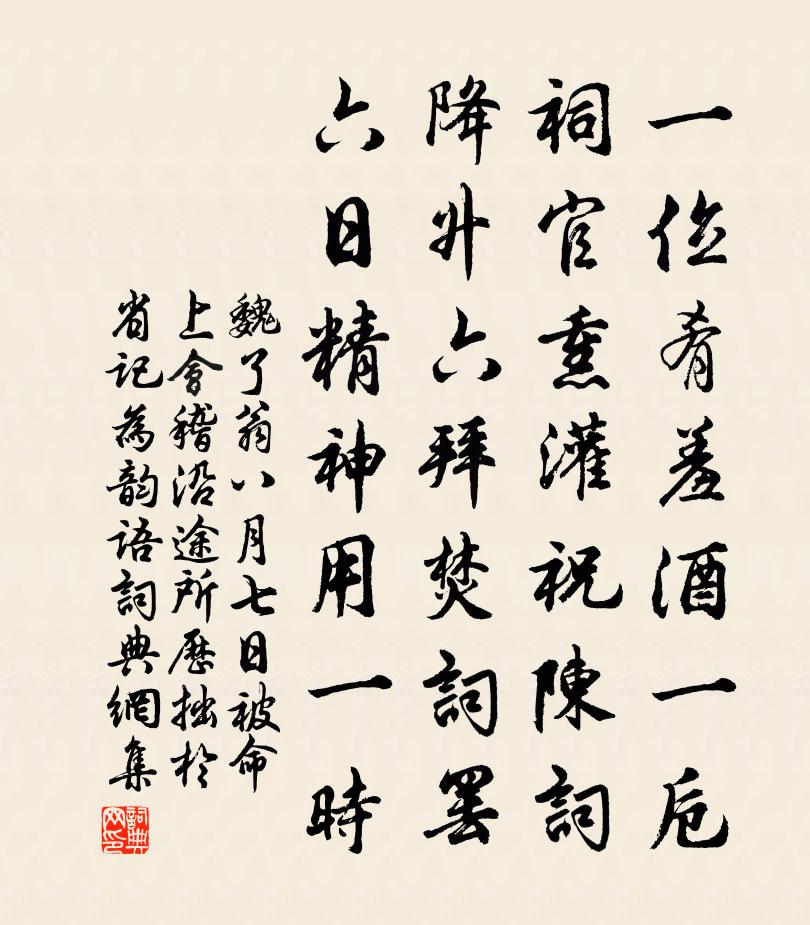 一位肴羞酒一卮
祠官熏灌祝陳詞
降升六拜焚詞罷
六日精神用一時
魏了翁八月七日被命
上會稽沿途所歷拙於
省記為韵語詞典網集
詞典
网印